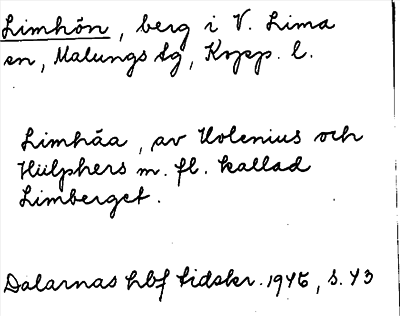 Limhön, berg i V. Lima
sn, Malungs tg, Kopp. l.
Limhäa, av Holenius och
Hülphers m. fl. kallad
Limberget.
Dalarnas hbf tidskr. 1945, s. 43